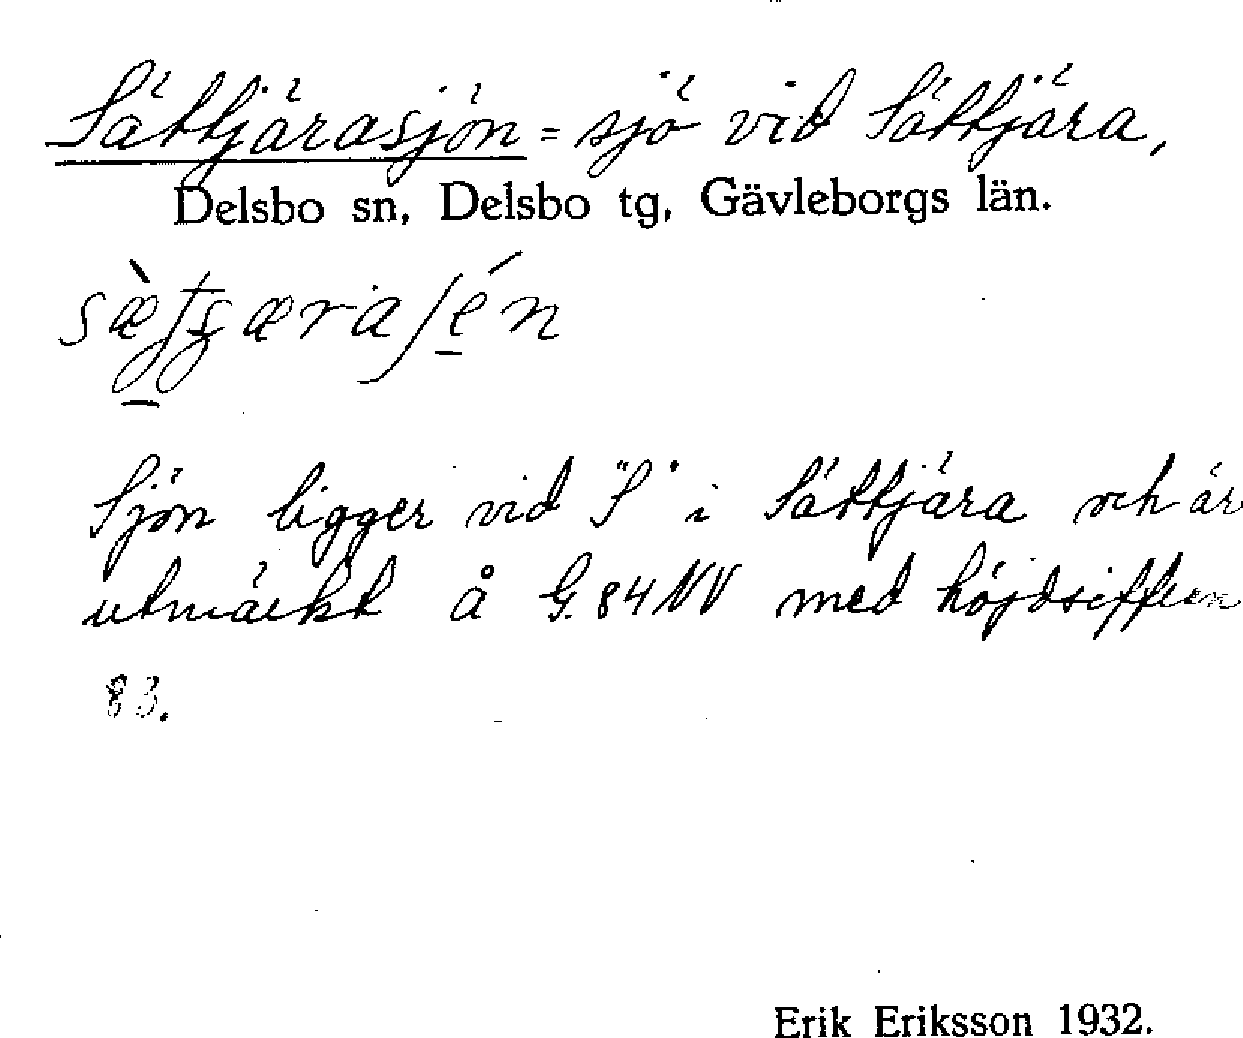 Sättjärasjön = sjö vid Sättjära,
Delsbo sn, Delsbo tg, Gävleborgs län.
Sjön ligger vid "S" i Sättjära och är
utmärkt å G.84NV med höjdsiffran
83.
Erik Eriksson 1932.